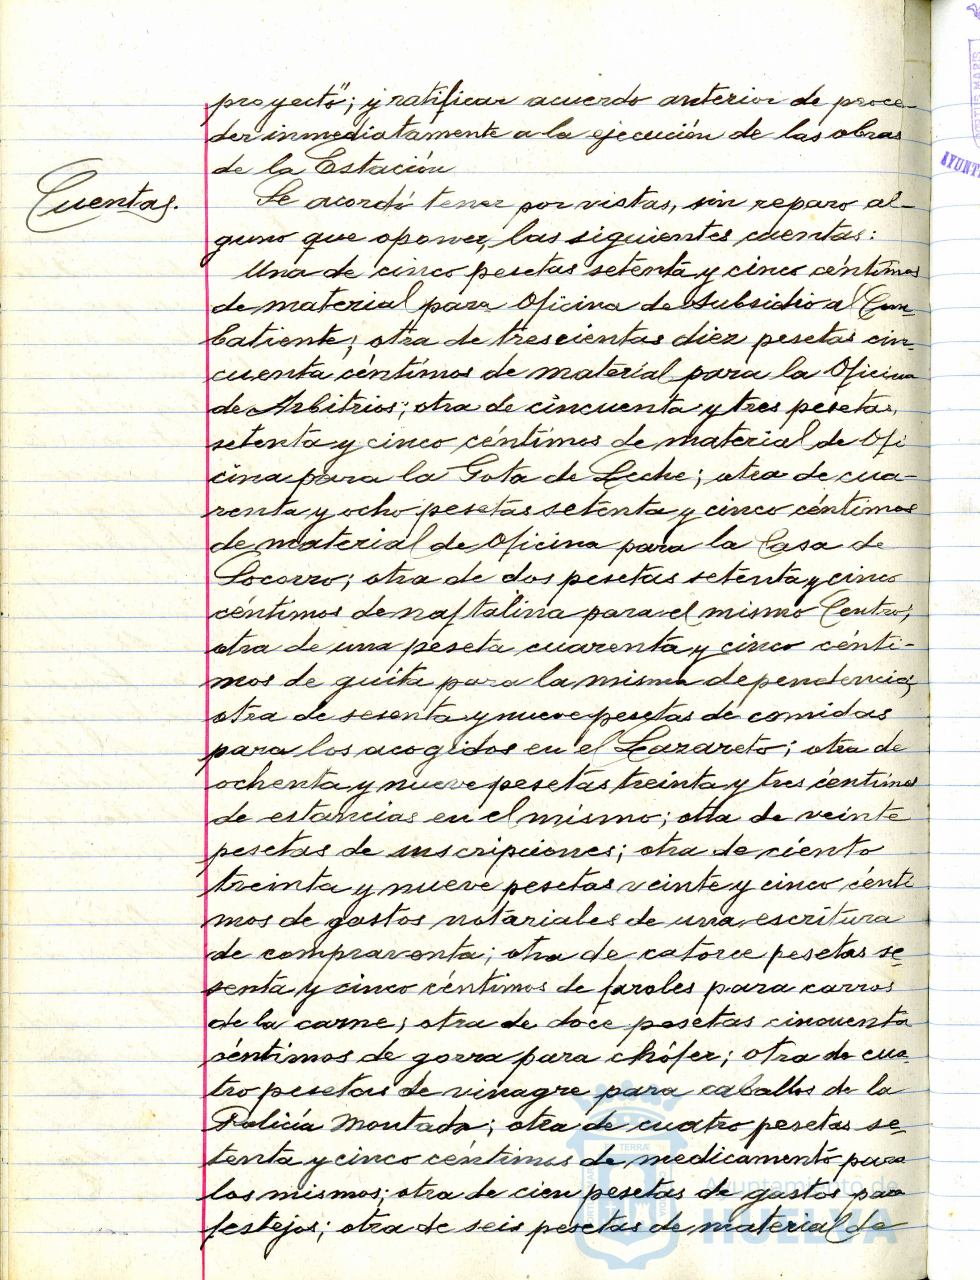 proyecto"; y ratificar acuerdo anterior de proce-
der inmediatamente a la ejecución de las obras
de la Estación
Cuentas.
Se acordó tener por vistas, sin reparo al-
guno que oponer, las siguientes cuentas:
Una de cinco pesetas setenta y cinco céntimos
de material para Oficina de Subsidio al Com-
batiente; otra de trescientas diez pesetas cin-
cuenta céntimos de material para la Oficina
de Arbitrios; otra de cincuenta y tres pesetas,
setenta y cinco céntimos de material de Ofi
cina para la Gota de Leche; otra de cua-
renta y ocho pesetas setenta y cinco céntimos
de material de Oficina para la Casa de
Socorro; otra de dos pesetas setenta y cinco
céntimos de naftalina para el mismo Centro;
otra de una peseta cuarenta y cinco cénti-
mos de guita para la misma dependencia;
otra de sesenta y nueve pesetas de comidas
para los acogidos en el Lazareto; otra de
ochenta y nueve pesetas treinta y tres céntimos
de estancias en el mismo; otra de veinte
pesetas de inscripciones; otra de ciento
treinta y nueve pesetas veinte y cinco cénti
mos de gastos notariales de una escritura
de compraventa; otra de catorce pesetas se-
senta y cinco céntimos de faroles para carros
de la carne; otra de doce pesetas cincuenta
céntimos de gorra para chófer; otra de cua-
tro pesetas de vinagre para caballos de la
Policía Montada; otra de cuatro pesetas se-
tenta y cinco céntimos de medicamento para
los mismos; otra de cien pesetas de gastos para
festejos; otra de seis pesetas de material de
Ayuntamiento de
HUELVA